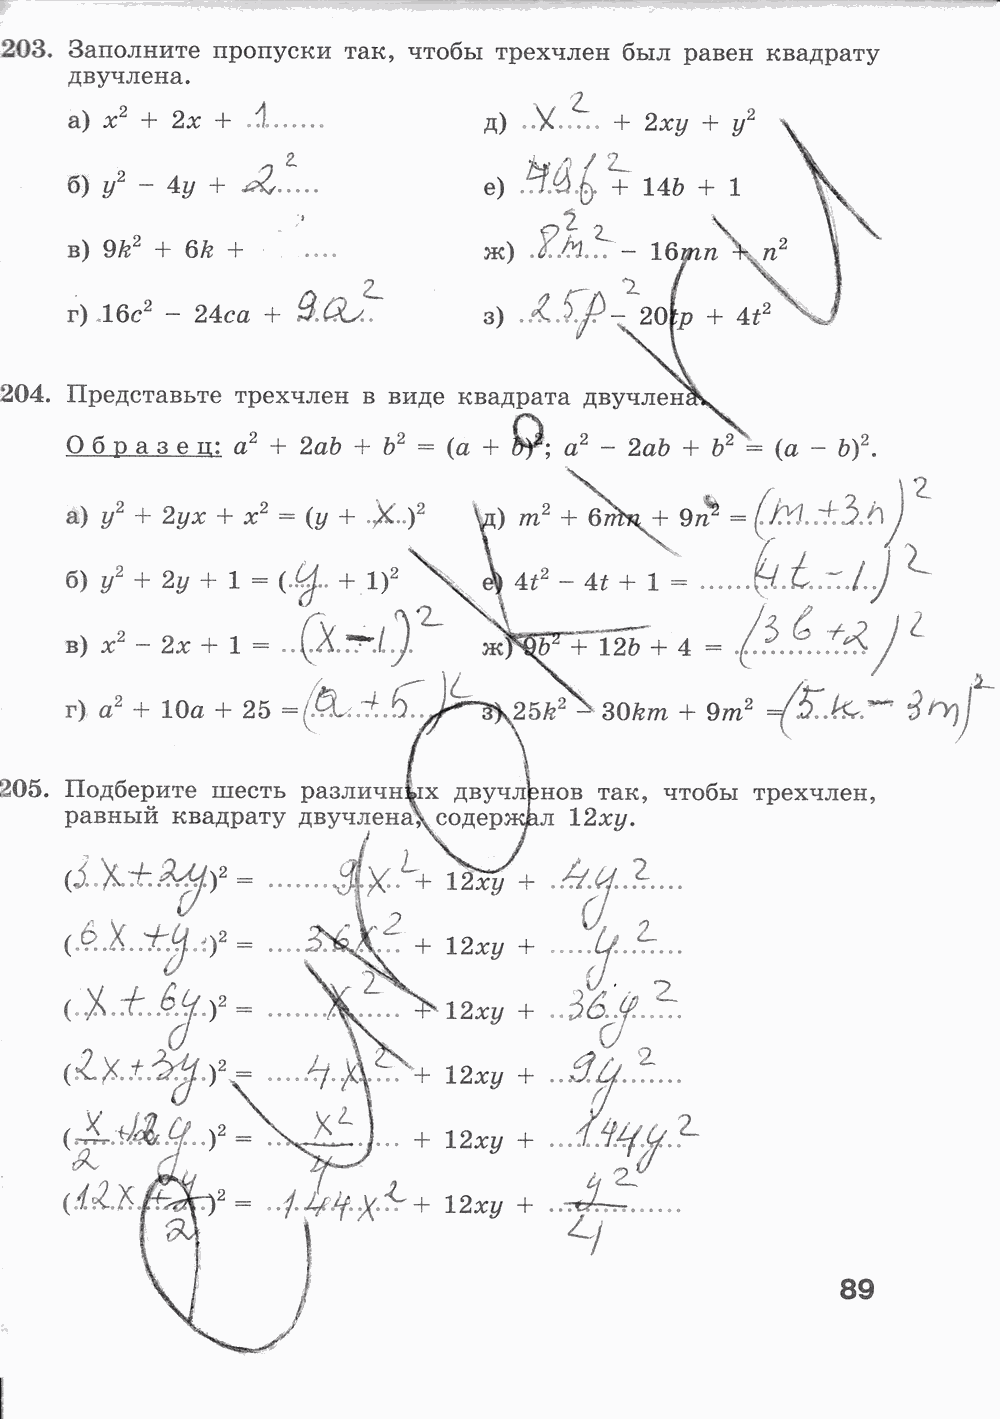 203. Заполните пропуски так, чтобы трехчлен был равен квадрату
двучлена.
а) x² + 2x + 1
б) y² − 4y + 2²
в) 9k² + 6k + ....
г) 16c² − 24ca + 9a²
д) x² + 2xy + y²
е) 49b² + 14b + 1
ж) 8²m² − 16mn + n²
з) 25p² − 20tp + 4t²
204. Представьте трехчлен в виде квадрата двучлена.
Образец: a² + 2ab + b² = (a + b)²; a² − 2ab + b² = (a − b)².
а) y² + 2yx + x² = (y + x)²
б) y² + 2y + 1 = (y + 1)²
в) x² − 2x + 1 = (x − 1)²
г) a² + 10a + 25 = (a + 5)²
д) m² + 6mn + 9n² = (m + 3n)²
е) 4t² − 4t + 1 = (4t − 1)²
ж) 9b² + 12b + 4 = (3b + 2)²
з) 25k² − 30km + 9m² = (5k − 3m)²
205. Подберите шесть различных двучленов так, чтобы трехчлен,
равный квадрату двучлена, содержал 12xy.
(3x + 2y)² = 9x² + 12xy + 4y²
(6x + y)² = 36x² + 12xy + y²
(x + 6y)² = x² + 12xy + 36y²
(2x + 3y)² = 4x² + 12xy + 9y²
(x/2 + 12y)² = x²/4 + 12xy + 144y²
(12x + y/2)² = 144x² + 12xy + y²/4
89